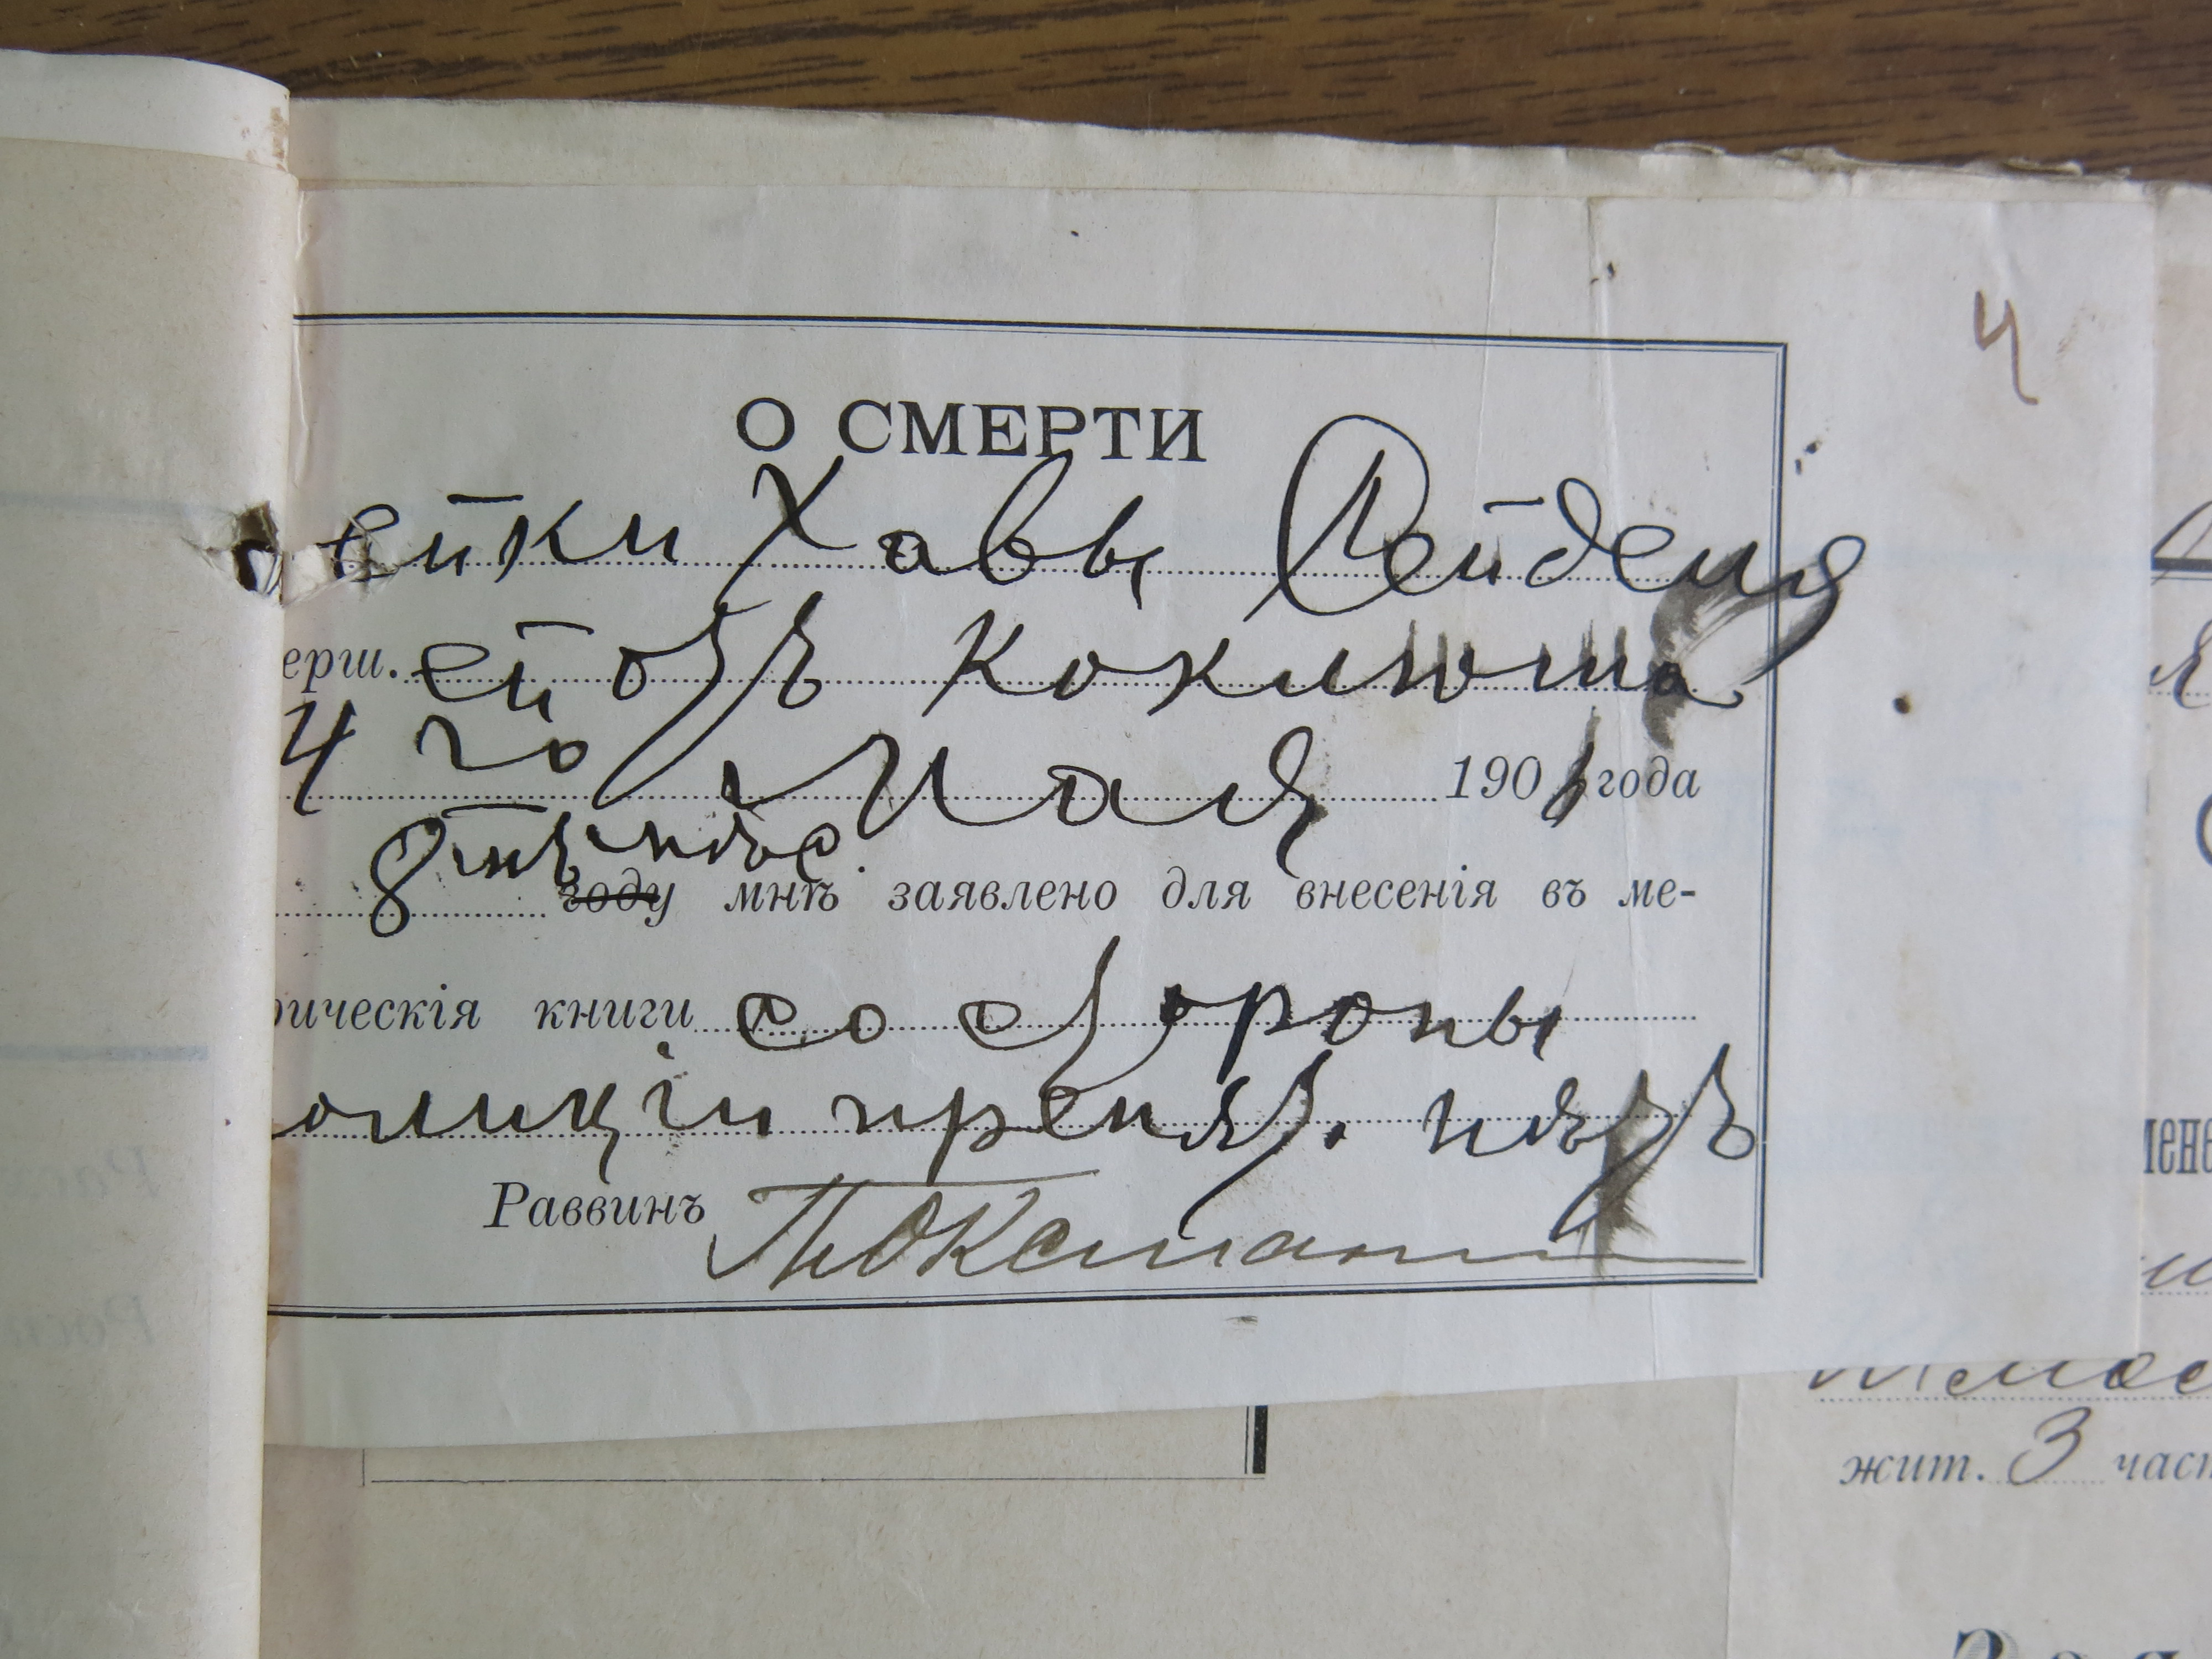 4
О СМЕРТИ
ейки Хавы Рейделя
ерш. ей отъ коклюша
4 го Мая 190 года
8 ми мѣс.
году мнѣ заявлено для внесенія въ ме-
рическія книги со стороны
олиціи препят. нѣтъ
Раввинъ
жит. 3 част